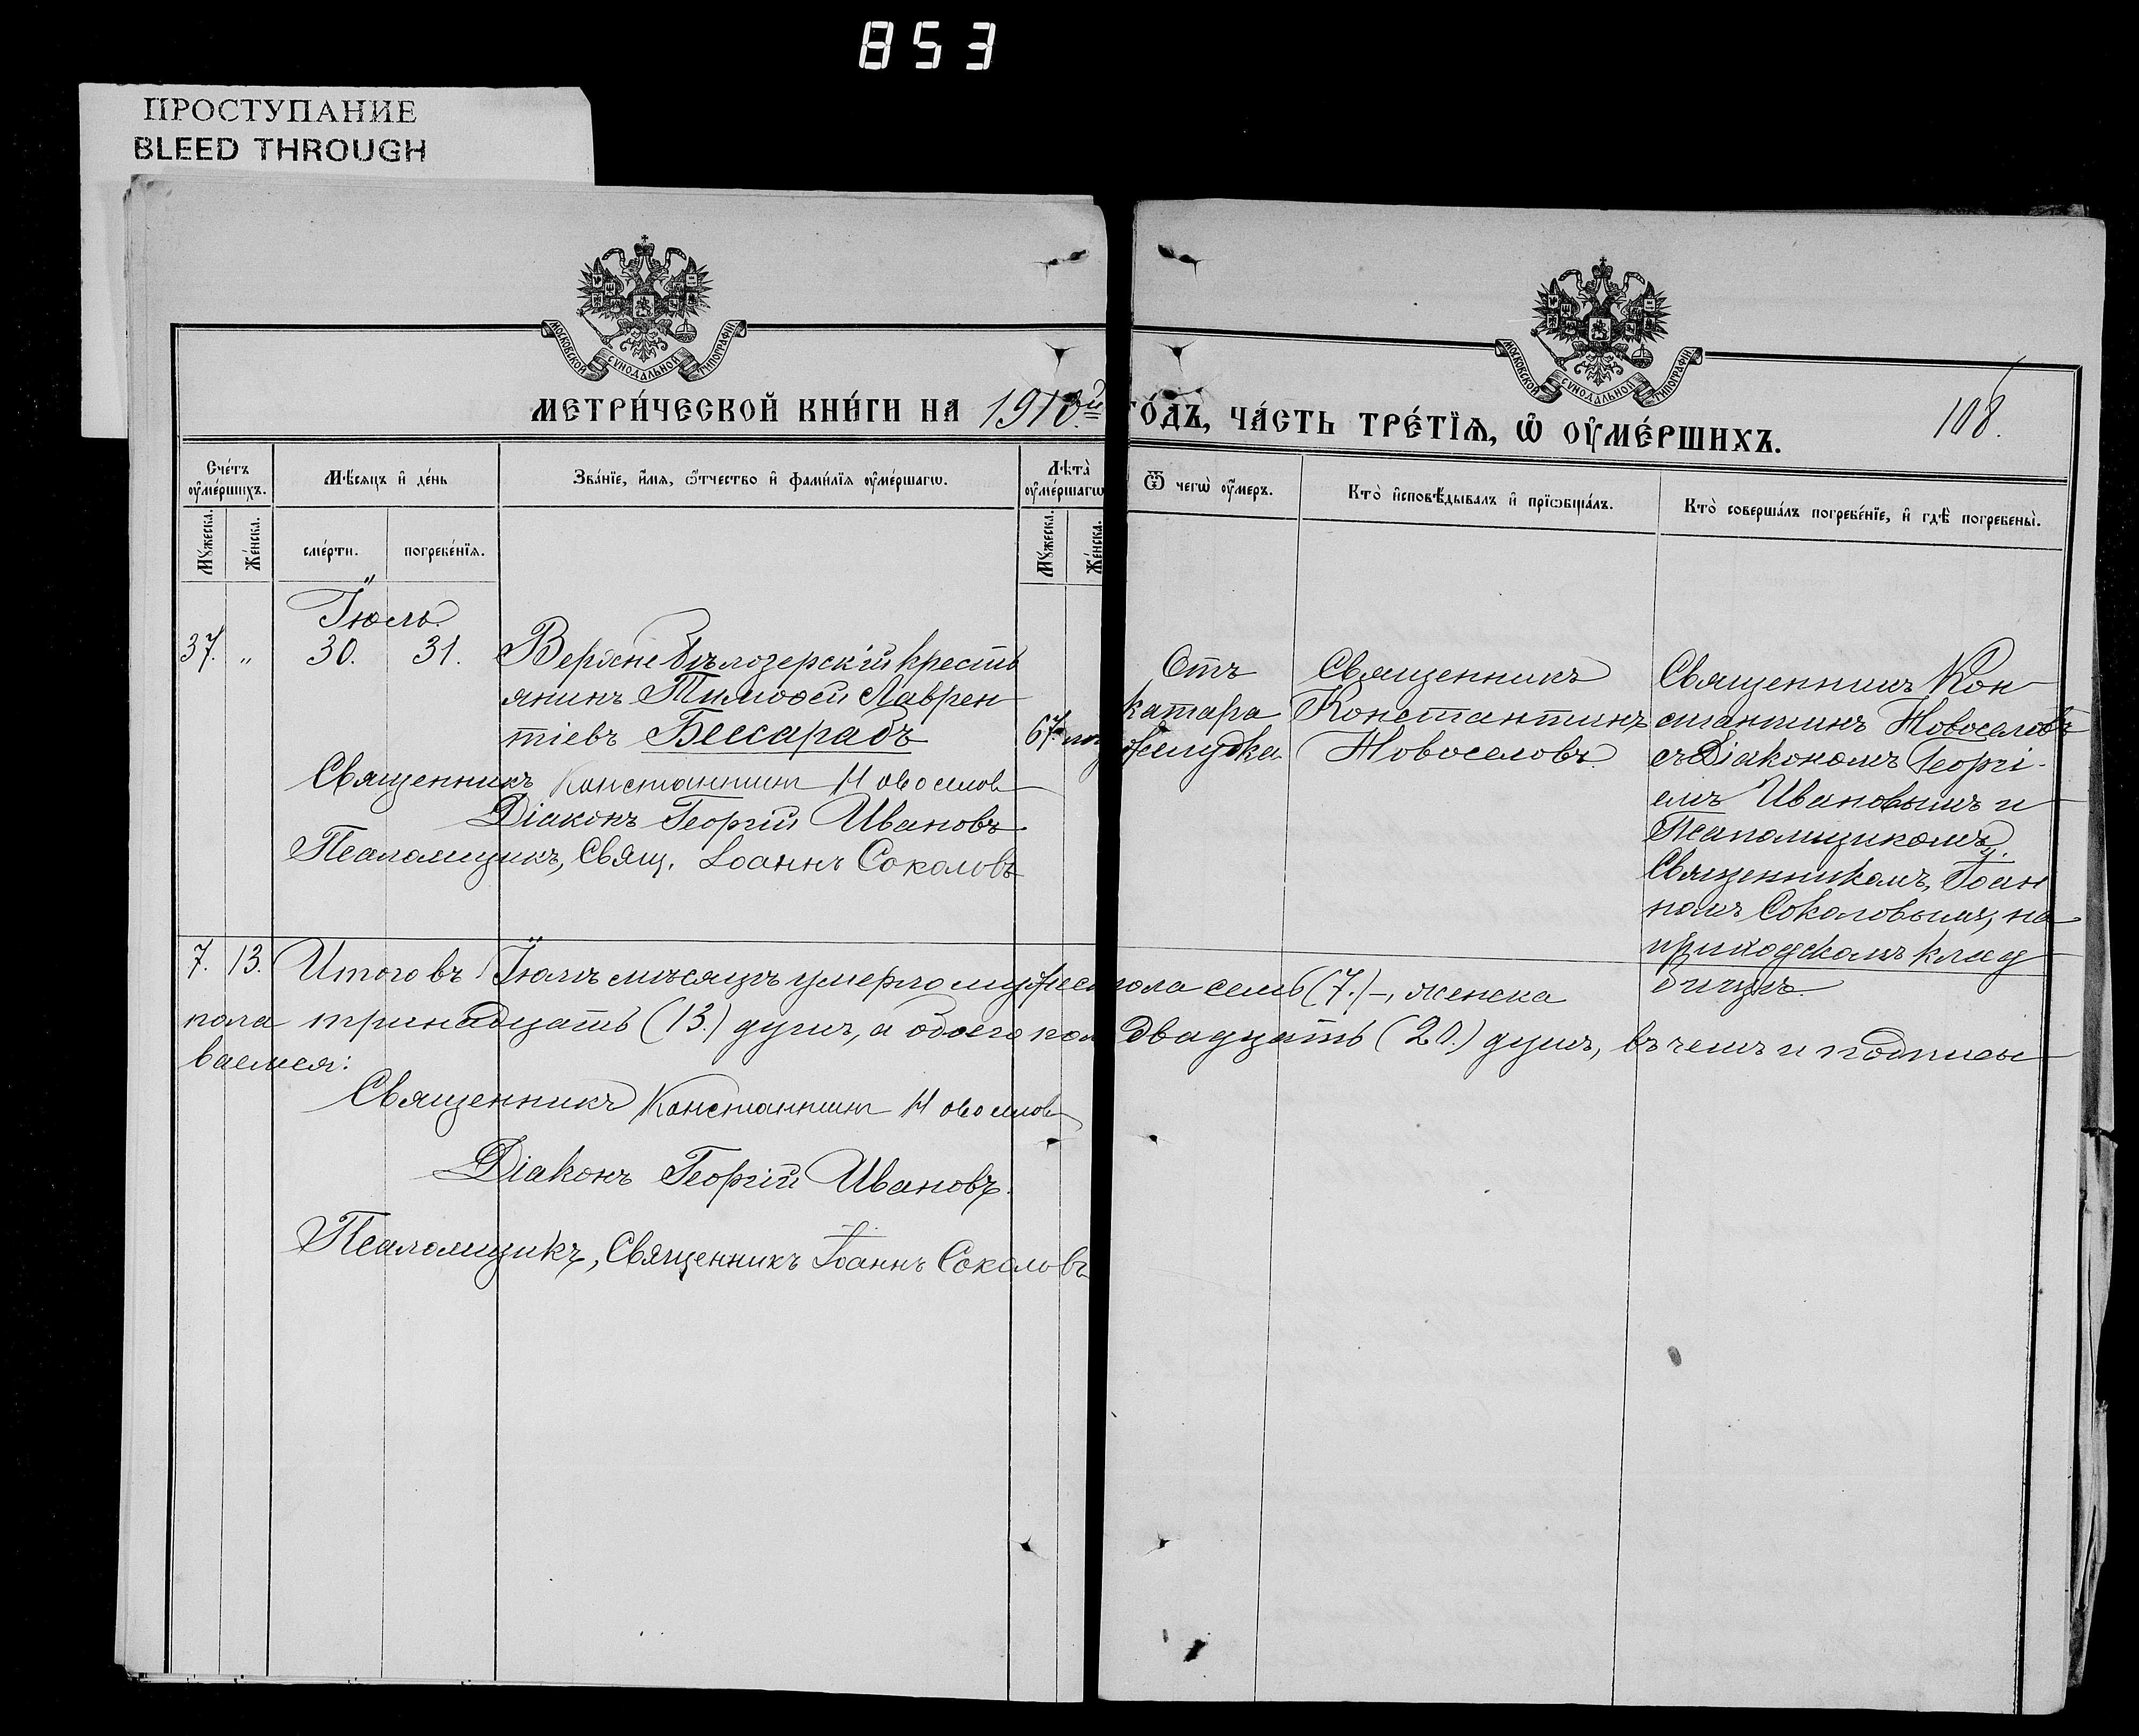 853
ПРОСТУПАНИЕ
BLEED THROUGH
МОСКОВСКОЙ СѴНОДАЛЬНОЙ ТИПОГРАФІИ
МОСКОВСКОЙ СѴНОДАЛЬНОЙ ТИПОГРАФІИ
МЕТРИ́ЧЕСКОЙ КНИ́ГИ НА 1910й ГО́ДЪ, ЧА́СТЬ ТРЕ́ТІѦ, Ѿ ОУМЕ́РШИХЪ.
108.
Сче́тъ оуме́ршихъ.
Мꙋжеска.
Же́нска.
Мѣсяцъ и де́нь
сме́рти.
погребе́нїѧ.
Зва́нїе, и́мѧ, ѻ́тчество и фами́лїѧ оуме́ршагѡ.
Лѣта̀ оуме́ршагѡ
Мꙋжеска.
Же́нска.
Ѿ чегѡ̀ оу́меръ.
Кто̀ исповѣ́дывалъ и прїѡбща́лъ.
Кто̀ соверша́лъ погребе́нїе, и гдѣ̀ погребены̀.
Іюль.
37. " 30. 31. Верхнебѣлозерскій кресть
янинъ Тимоѳей Лаврен
тіевъ Бессарабъ
67.
Отъ
катара
желудка.
Священникъ
Константинъ
Новоселовъ.
Священникъ Кон
стантинъ Новоселовъ
съ Діакономъ Георгі-
емъ Ивановымъ и
Псаломщикомъ,
Священникомъ, Іоан
номъ Соколовымъ, на
приходскомъ клад
бищѣ.
Священникъ Константинъ Новоселовъ
Діаконъ Георгій Ивановъ.
Псаломщикъ, Свящ. Іоаннъ Соколовъ
7. 13. Итого въ Іюлѣ мѣсяцѣ умерло мужеска пола семь (7.)–, женска
пола тринадцать (13.) душъ, а обоего пола двадцать (20.) душъ, въ чемъ и подписы
ваемся:
Священникъ Константинъ Новоселовъ
Діаконъ Георгій Ивановъ.
Псаломщикъ, Священникъ Іоаннъ Соколовъ